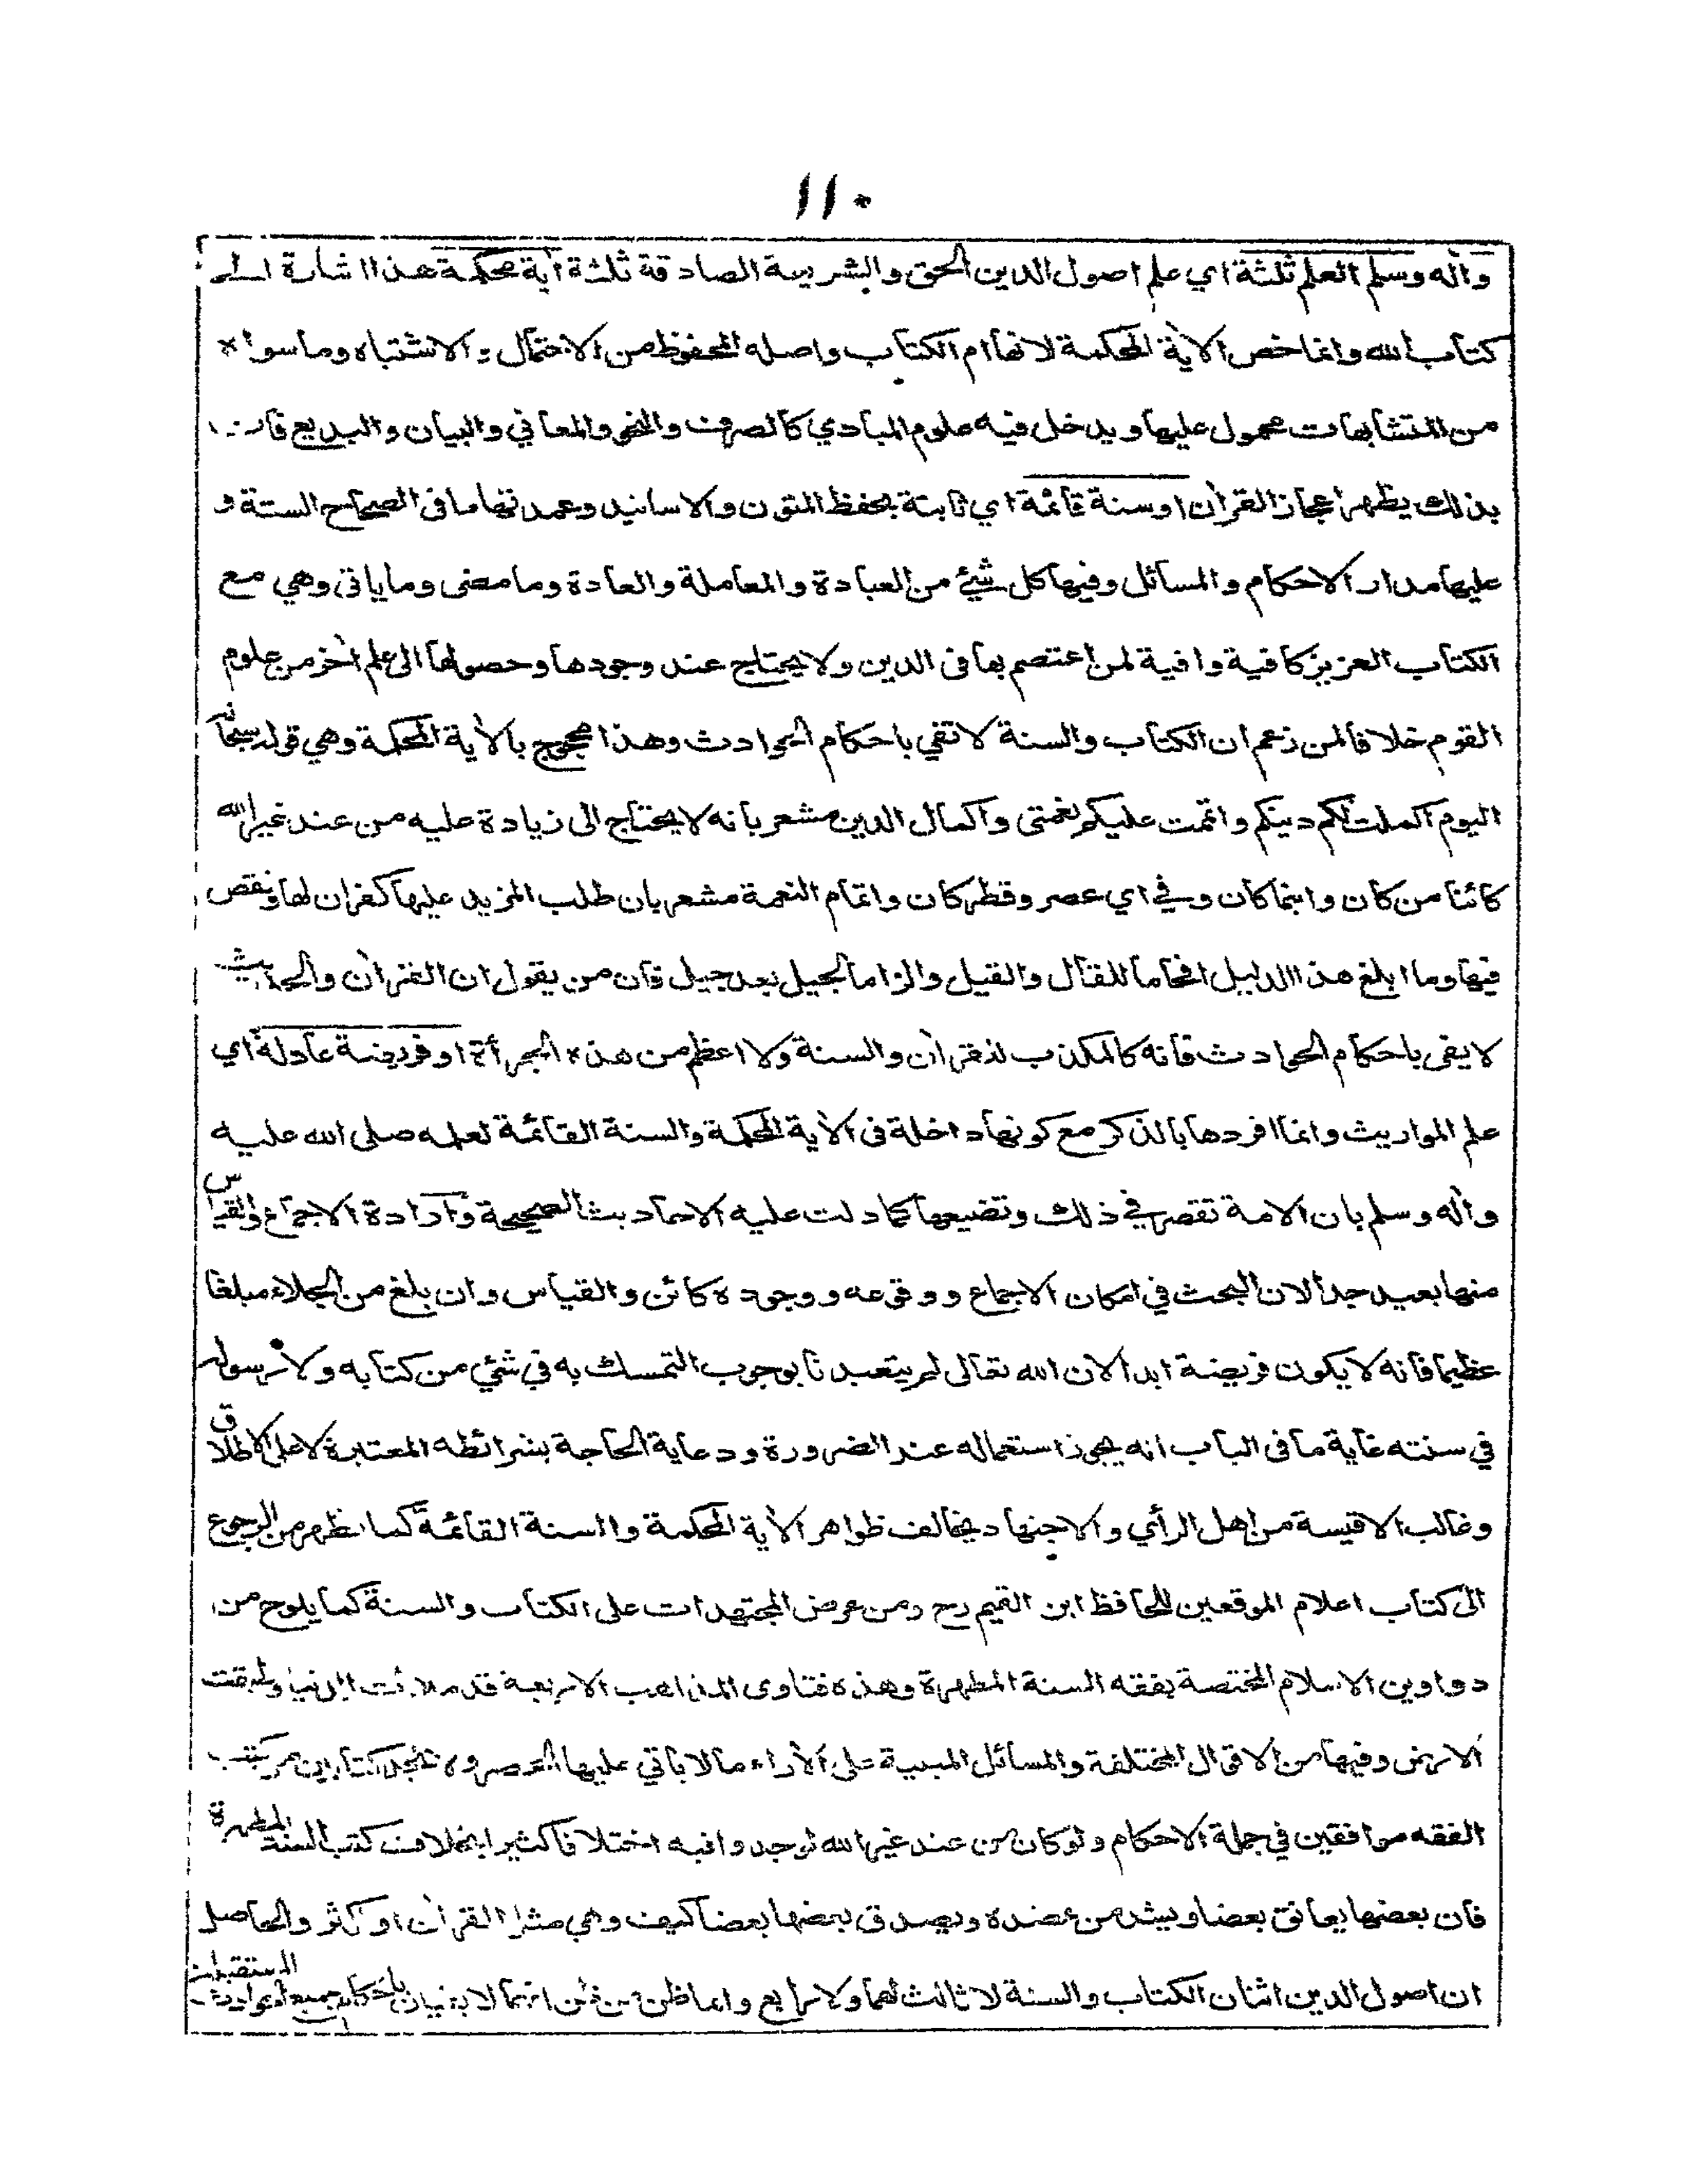 ١١٠
وآله وسلم العلم ثلثة اي علم اصول الدين الحق والشريعة الصادقة ثلثة آية محكمة هذا اشارة الى
كتاب الله وانما خص الآية المحكمة لانها ام الكتاب واصله المحفوظ من الاحتمال والاشتباه وما سواه
من المتشابهات محمول عليها ويدخل فيه علوم المبادي كالصرف والنحو والمعاني والبيان والبديع فان
بذلك يظهر اعجاز القرآن او سنة قائمة اي ثابتة بحفظ المتون والاسانيد وعمدتها ما في الصحاح الستة و
عليها مدار الاحكام والمسائل وفيها كل شيئ من العبادة والمعاملة والعادة وما مضى وما ياتى وهي مع
الكتاب العزيز كافية وافية لمن اعتصم بها فى الدين ولا يحتاج عند وجودها وحصولها الى علم آخر من علوم
القوم خلافا لمن زعم ان الكتاب والسنة لا تفي باحكام الحوادث وهذا محجوج بالآية المحكمة وهي قوله سبحانه
اليوم اكملت لكم دينكم واتممت عليكم نعمتى واكمال الدين مشعر بانه لا يحتاج الى زيادة عليه من عند غير الله
كائنا من كان واينما كان وفي اي عصر وقطر كان واتمام النعمة مشعر بان طلب المزيد عليها كفران لها ونقص
فيها وما ابلغ هذا الدليل افحاما للقال والقيل والزاما لجيل بعد جيل فان من يقول ان القرآن والحديث
لا يفى باحكام الحوادث فانه كالمكذب لقرآن والسنة ولا اعظم من هذه الجرأة او فريضة عادلة اي
علم المواريث وانما افردها بالذكر مع كونها داخلة فى الآية المحكمة والسنة القائمة لعلمه صلى الله عليه
وآله وسلم بان الامة تقصر في ذلك وتضيعها كما دلت عليه الاحاديث الصحيحة وارادة الاجماع والقياس
منها بعيد جدا لان البحث في امكان الاجماع ووقوعه ووجوده كائن والقياس وان بلغ من الجلاء مبلغا
عظيما فانه لا يكون فريضة ابدا لان الله تعالى لم يتعبدنا بوجوب التمسك به في شئي من كتابه ولا رسوله
في سنته غاية ما فى الباب انه يجوز استعماله عند الضرورة ودعاية الحاجة بشرائطه المعتبرة لا على الاطلاق
وغالب الاقيسة من اهل الرأي والاجتهاد يخالف ظواهر الآية المحكمة والسنة القائمة كما يظهر من الرجوع
الى كتاب اعلام الموقعين للحافظ ابن القيم رح ومن عرض المجتهدات على الكتاب والسنة كما يلوح من
دواوين الاسلام المختصة بفقه السنة المطهرة وهذه فتاوى المذاهب الاربعة قد ملأت الدنيا وطبقت
الارض وفيها من الاقوال المختلفة والمسائل المبنية على الآراء ما لا ياتي عليها الحصر ولا تجد كتابين من كتب
الفقه موافقين في جملة الاحكام ولو كان من عند غير الله لوجدوا فيه اختلافا كثيرا بخلاف كتب السنة المطهرة
فان بعضها يعانق بعضا ويشد من عضده ويصدق بعضها بعضا كيف وهي مثل القرآن او اكثر والحاصل
ان اصول الدين اثنان الكتاب والسنة لا ثالث لهما ولا رابع وانما ظن من ظن انهما لا يفيان باحكام جميع الحوادث